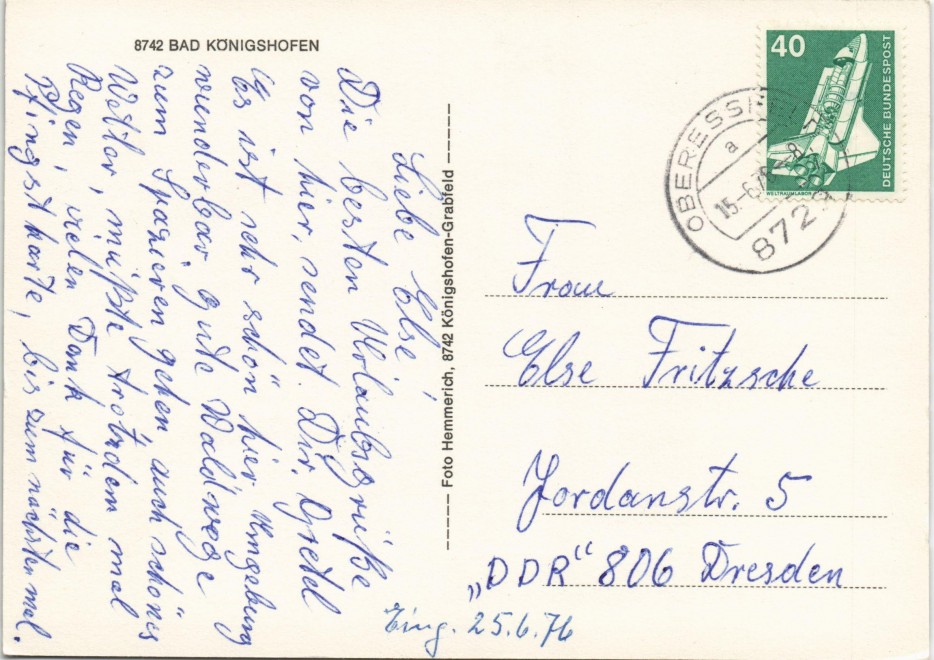 8742 BAD KÖNIGSHOFEN
Liebe Else!
Die besten Urlaubsgrüße
von hier, sendet Dir Gretel
Es ist sehr schön hier Umgebung
wunderbar gute Waldwege
zum Spazieren gehen auch schönes
Wetter, müßte trotzdem mal
Regen, vielen Dank für die
Pfingstkarte, bis zum nächsten mal.
Foto Hemmerich, 8742 Königshofen-Grabfeld
40
DEUTSCHE BUNDESPOST
WELTRAUMLABOR
OBERESSF
a
15.-6.76-8
872
Frau
Else Fritzsche
Jordanstr. 5
„DDR“ 806 Dresden
Eing. 25.6.76